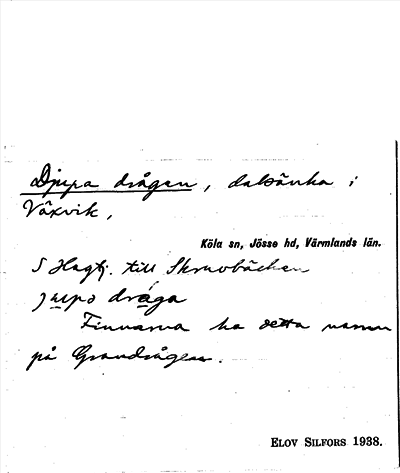 Djupa drågen, dalsänka i
Växvik,
Köla sn, Jösse hd, Värmlands län.
S Hagtj. till Skruvbäcken
jupo dråga
Finnarna ha detta namn
på Grandrågen.
ELOV SILFORS 1938.